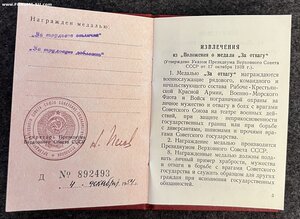 Награжден медалью
„За трудовое отличие"
„За трудовую доблесть"
Секретарь Президиума
Верховного Совета СССР
Д № 892493
ИЗВЛЕЧЕНИЯ
из „Положения о медали „За отвагу"
(Утверждено Указом Президиума Верховного Совета
СССР от 17 октября 1938 г.)
1. Медалью „За отвагу" награждаются
военнослужащие рядового, командного и
начальствующего состава Рабоче-Крестьян-
ской Красной Армии, Военно-Морского
Флота и Войск пограничной охраны за
личное мужество и отвагу в боях с врагами
Советского Союза на театре военных дей-
ствий, при защите неприкосновенности
государственных границ или при борьбе
с диверсантами, шпионами и прочими вра-
гами Советского государства.
2. Награждение медалью производится
Президиумом Верховного Совета СССР.
Награжденные медалью должны пода-
вать личный пример храбрости, мужества
и отваги в борьбе с врагами Советского
Союза и служить образцом для других
граждан при исполнении государственных
обязанностей.